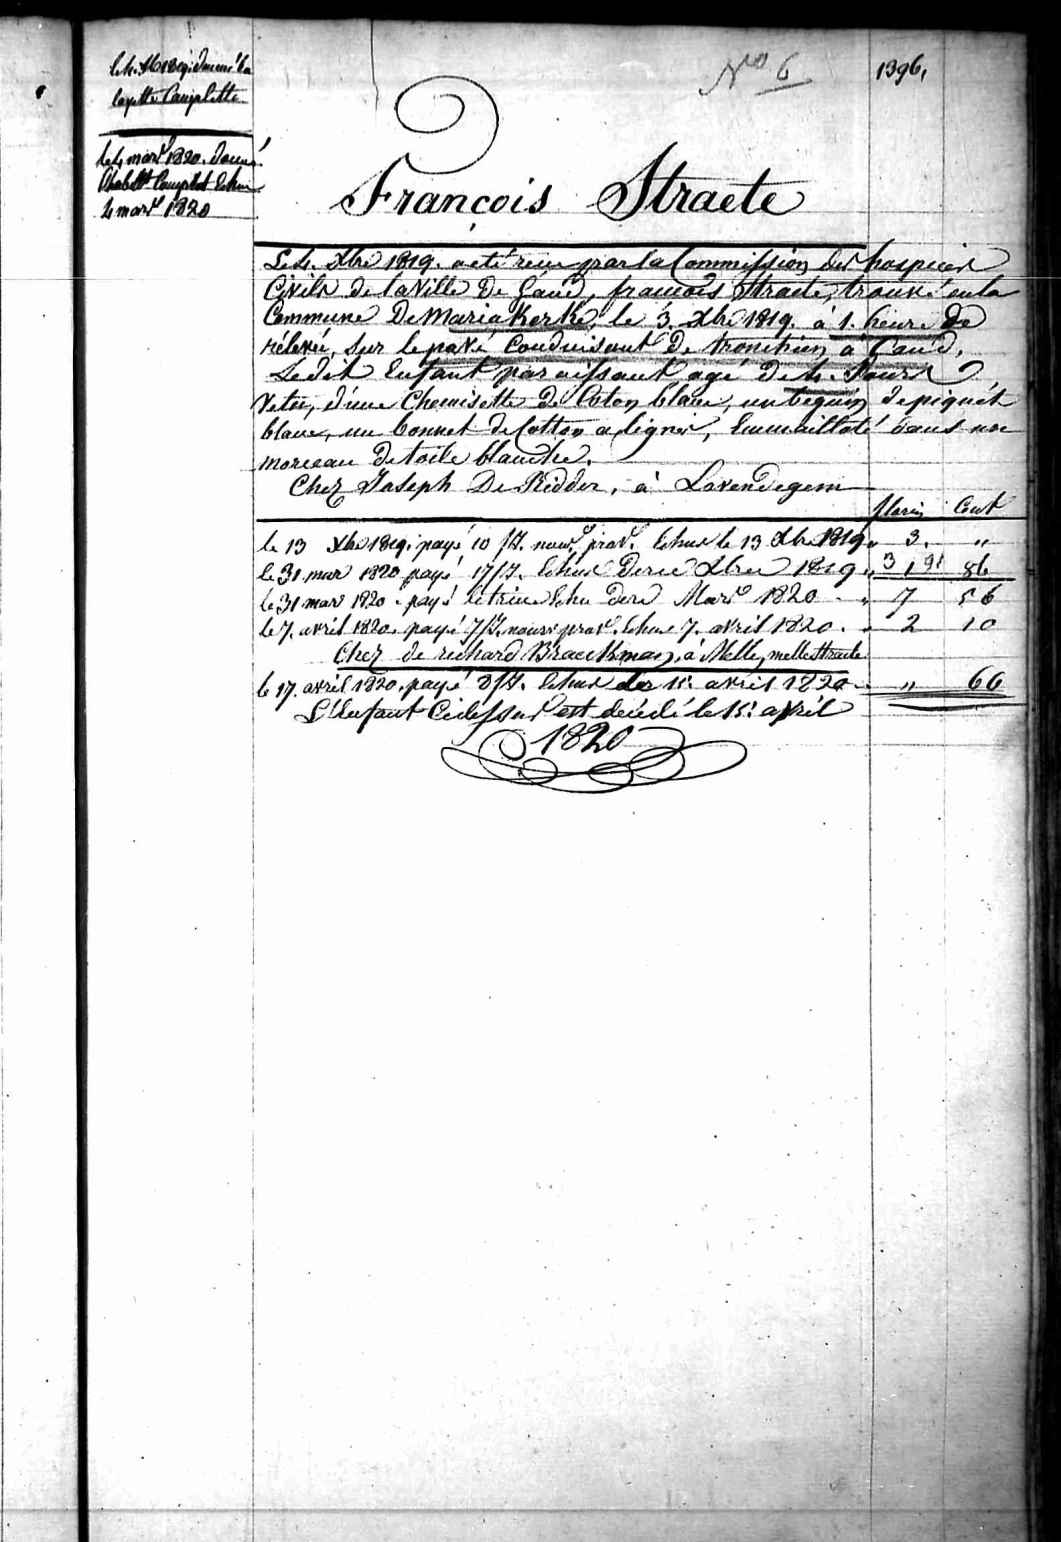 No 6
1396,
layette Complette
le 4 mars 1820. donné
Complet Echu
4 mars 1820
François Straete
Le 4. Xbre 1819. a été reçu par la Commission des hospices
Civils de la Ville De Gand, françois Straete, trouvé en la
Commune De Mariakerke, le 3. Xbre 1819. à 1. heure de
rélevée, sur le pavé Conduisant De tronchien à Gand,
Ledit Enfant paraissant agé De 4. Jours
Vetu, d'une Chemisette De Coton blanc, un beguin de piquét
blanc, un bonnet de Cotton a lignes, Emmailloté dans un
morceau De toile blanche.
Chez Joseph De Ridder, à Lovendegem
florin Cent
le 13 Xbre 1819. payé 10 Echus le 13 Xbre 1819 " 3. "
le 31 mars 1820 payé 17 Echus Xbre 1819 " 3 86
le 31 mars 1820. payé Echu Mars 1820 " 7 56
le 7. avril 1820. payé 7 Echus 7. avril 1820. " 2 10
Chez de richard Braeckman, à Melle,
le 17. avril 1820. payé 8 Echus 15. avril 1820 " 66
L'Enfant Cidessus est décédé le 15. avril
1820